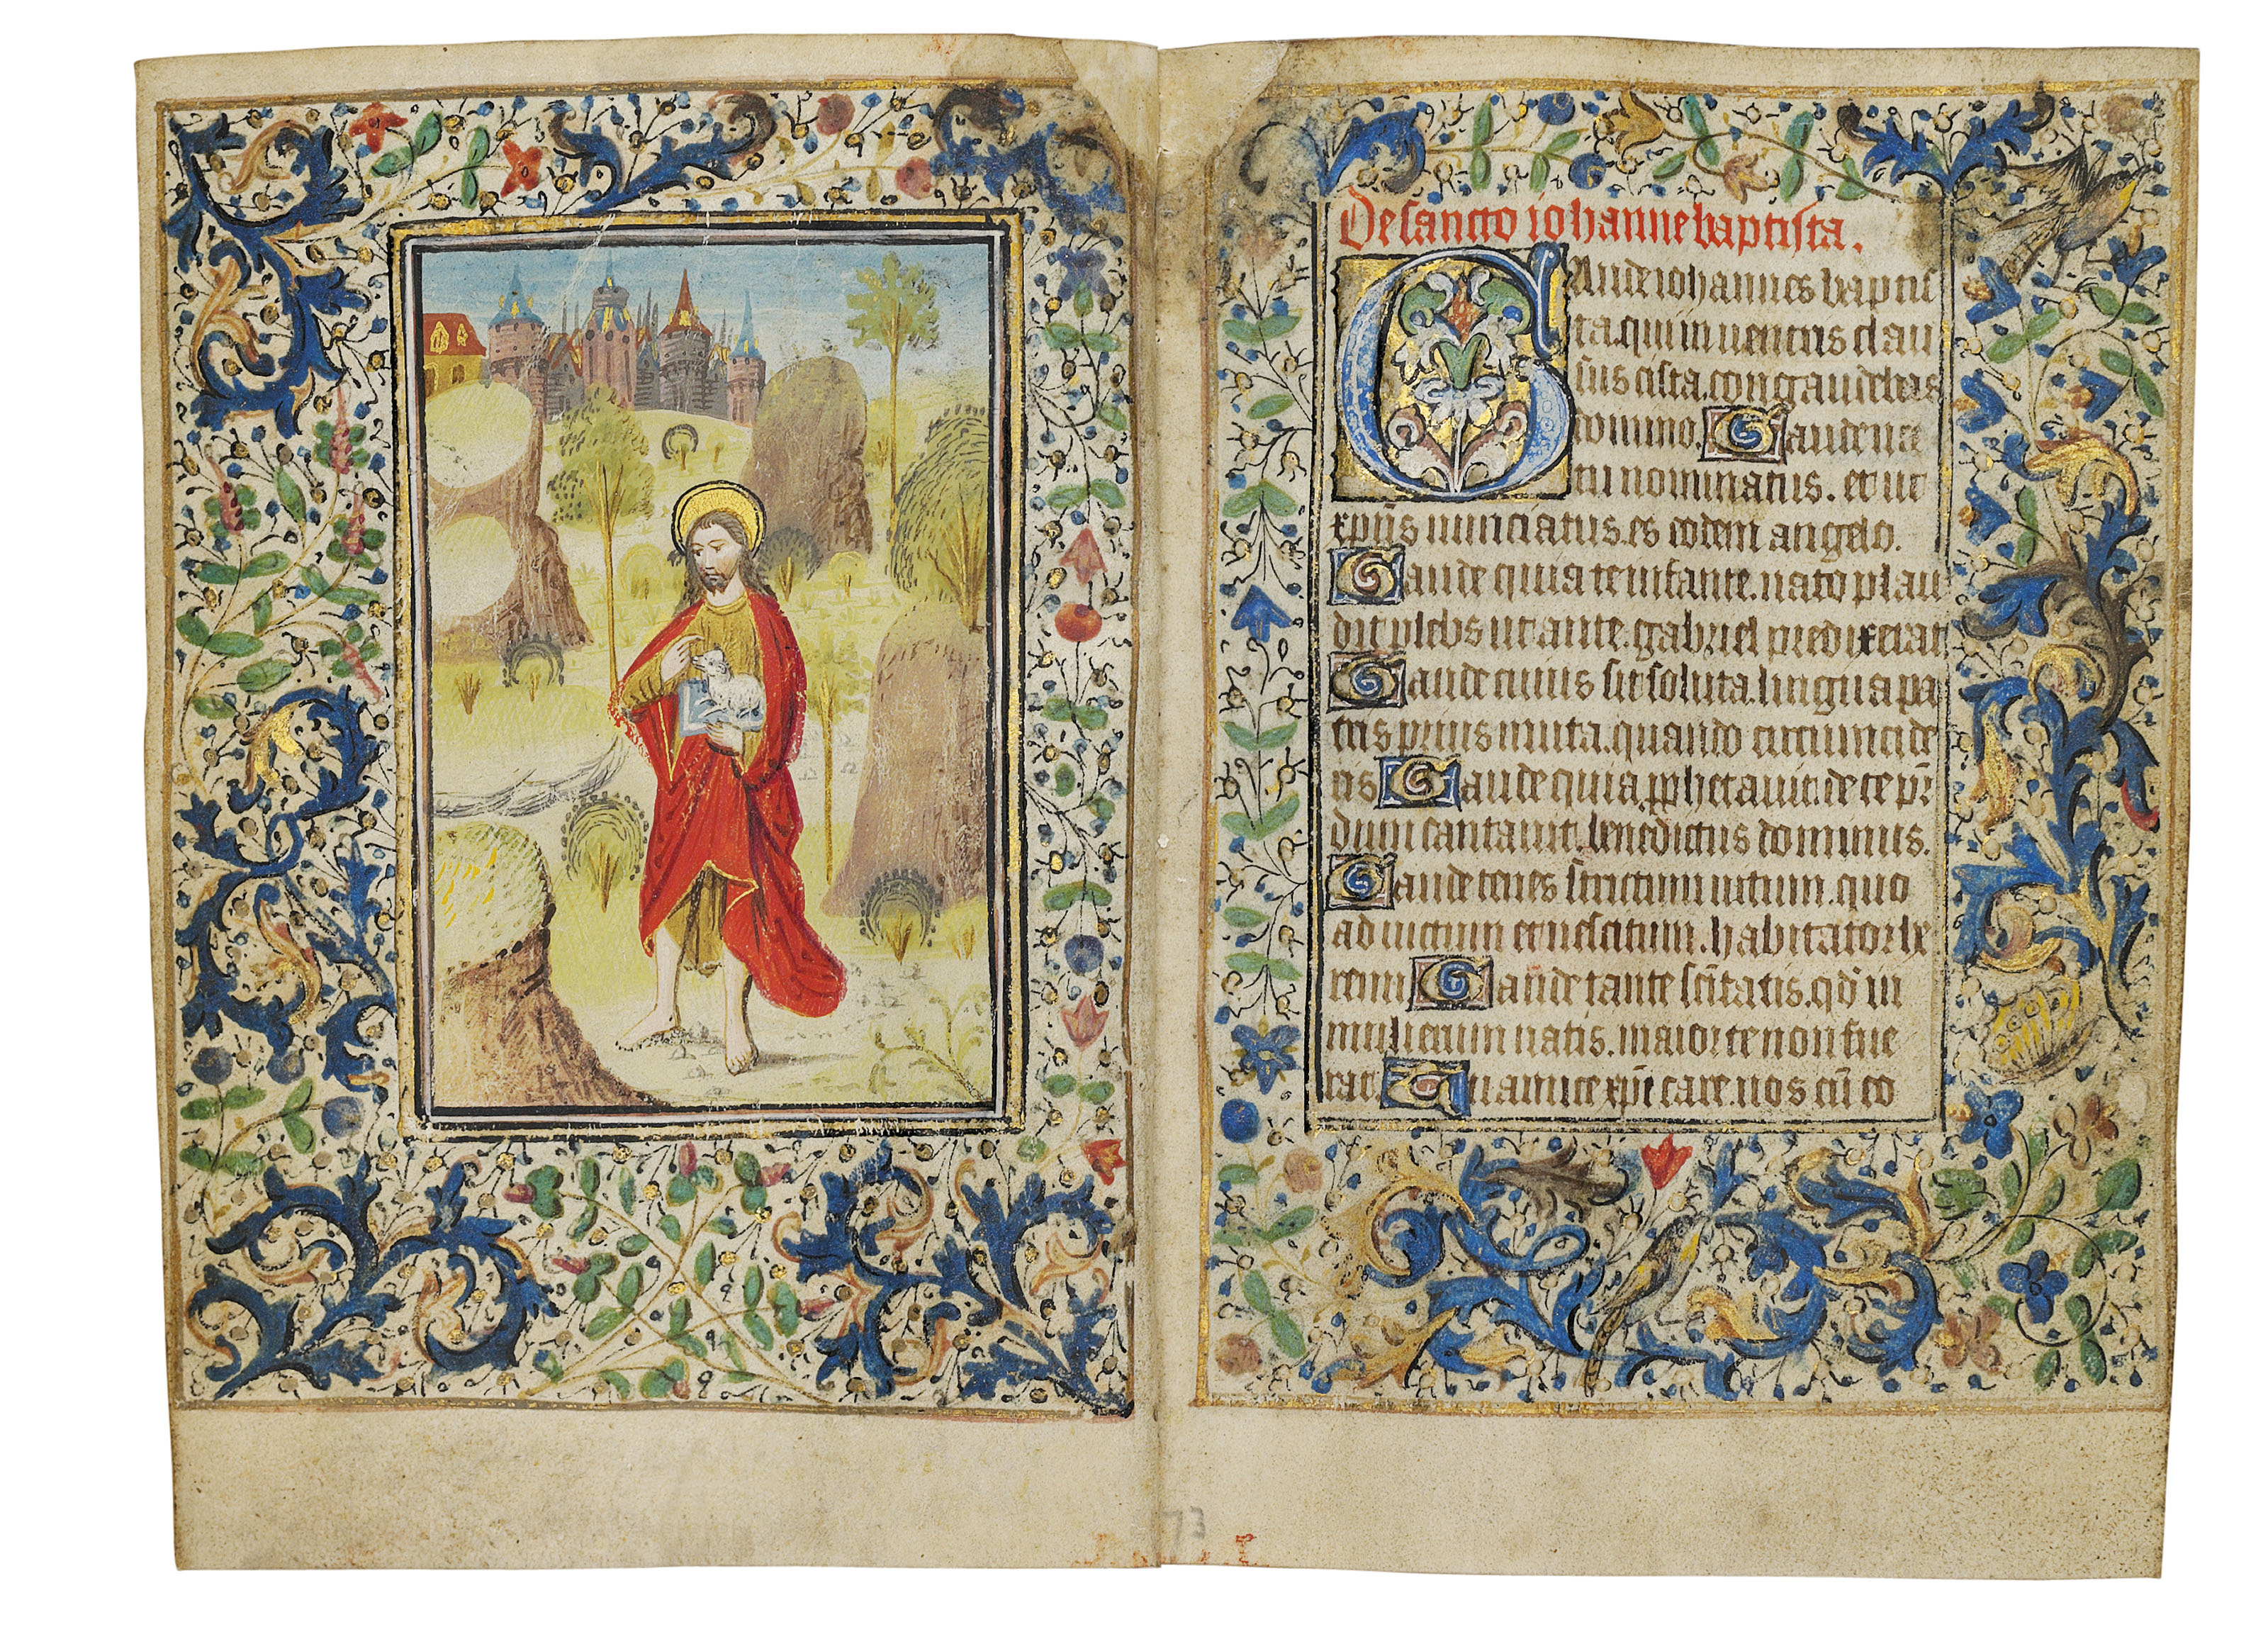 De sancto iohanne baptista.
Gaude iohannes baptis
ta. qui in uentris clau
sus cista. congaudebas
domino. Gaude ua
tu nominatus. et ut
xp̄us nunciatus. es eodem angelo.
Gaude quia te infante. nato plau
dit plebs ut ante. gabriel predixerat
Gaude cuius sit soluta. lingua pa
tris prius muta. quando circumcide
ris Gaude quia prphetauit. de te pr̄
dum cantauit. benedictus dominus.
Gaude tenes strictum uitum. quo
ad uictum et uestitum. habitator he
remi Gaude tante sc̄itatis. qd̄ in
mulierum natis. maior te non fue
rat. Quamite xp̄i care. nos cū eo
73